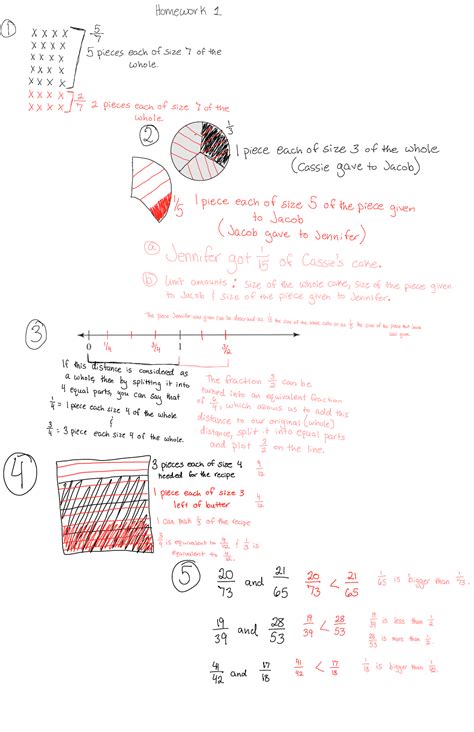 Homework 1
① x x x x 5/7
x x x x 5 pieces each of size 7 of the
x x x x whole.
x x x x
x x x x
x x x x 2/7 2 pieces each of size 7 of the
x x x x whole.
② 1/3
1 piece each of size 3 of the whole
(Cassie gave to Jacob)
1/5 1 piece each of size 5 of the piece given
to Jacob
(Jacob gave to Jennifer)
ⓐ Jennifer got 1/15 of Cassie's cake.
ⓑ Unit amounts : size of the whole cake, size of the piece given
to Jacob & size of the piece given to Jennifer.
The piece Jennifer was given can be described as 1/15 the size of the whole cake or as 1/5 the size of the piece that Jacob
was given.
③
0 1/4 3/4 1 3/2
If this distance is considered as
a whole, then by splitting it into
4 equal parts, you can say that
1/4 = 1 piece each size 4 of the whole
&
3/4 = 3 piece each size 4 of the whole.
The fraction 3/2 can be
turned into an equivalent fraction
of 6/4, which allows us to add this
distance to our original (whole)
distance, split it into equal parts
and plot 3/2 on the line.
④
3 pieces each of size 4 9/12
needed for the recipe
1 piece each of size 3 4/12
left of butter
I can make 1/3 of the recipe
3/4 is equivalent to 9/12 & 1/3 is
equivalent to 4/12.
⑤
20/73 and 21/65 20/73 < 21/65 1/65 is bigger than 1/73.
19/39 and 28/53 19/39 < 28/53 19/39 is less than 1/2
28/53 is more than 1/2.
41/42 and 17/18 41/42 < 17/18 1/18 is bigger than 1/42.